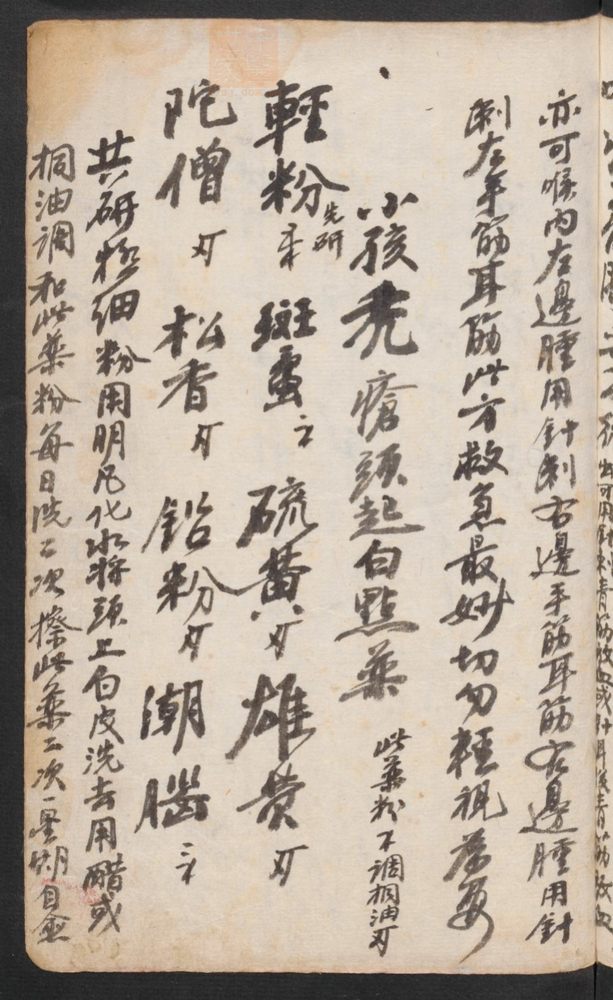 亦可喉内左邊腫用針刺右邊手筋耳筋右邊腫用針
刺左手筋耳筋此方救急最妙切勿輕視为要
小孩秃瘡頭起白點藥 此藥粉不調桐油可
輕粉 先研 斑蝥 硫黄 雄黄
陀僧 松香 鉛粉 潮腦
共研极细粉用明凡化水将頭上白皮洗去用醋或
桐油調和此藥粉每日洗二次擦此藥二次一星期自愈